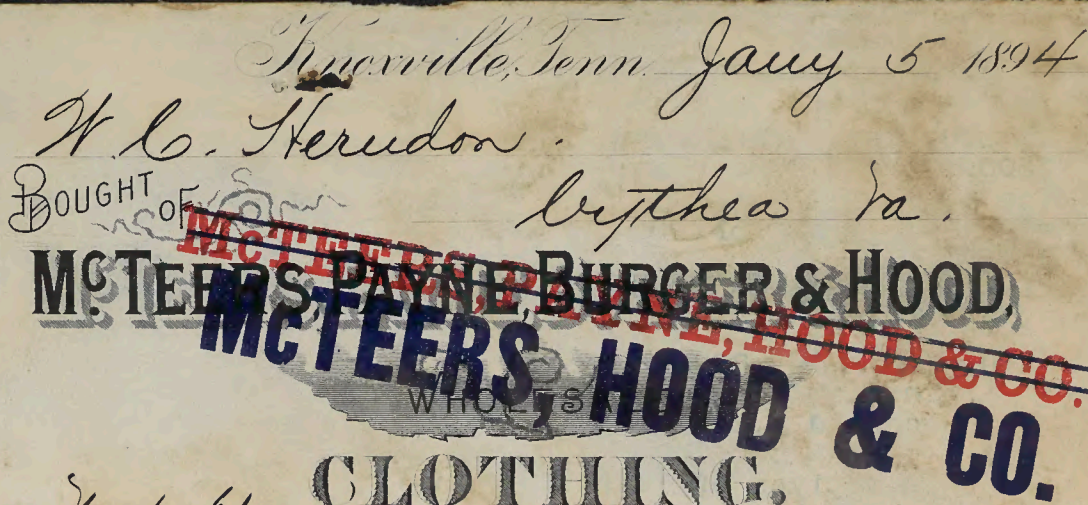 Knoxville, Tenn. Jany 5 1894
W. C. Herndon.
BOUGHT OF
Cythea Va.
McTEERS, PAYNE, BURGER & HOOD,
McTEERS, PAYNE, HOOD & CO.
McTEERS, HOOD & CO.
WHOLESALE
CLOTHING.